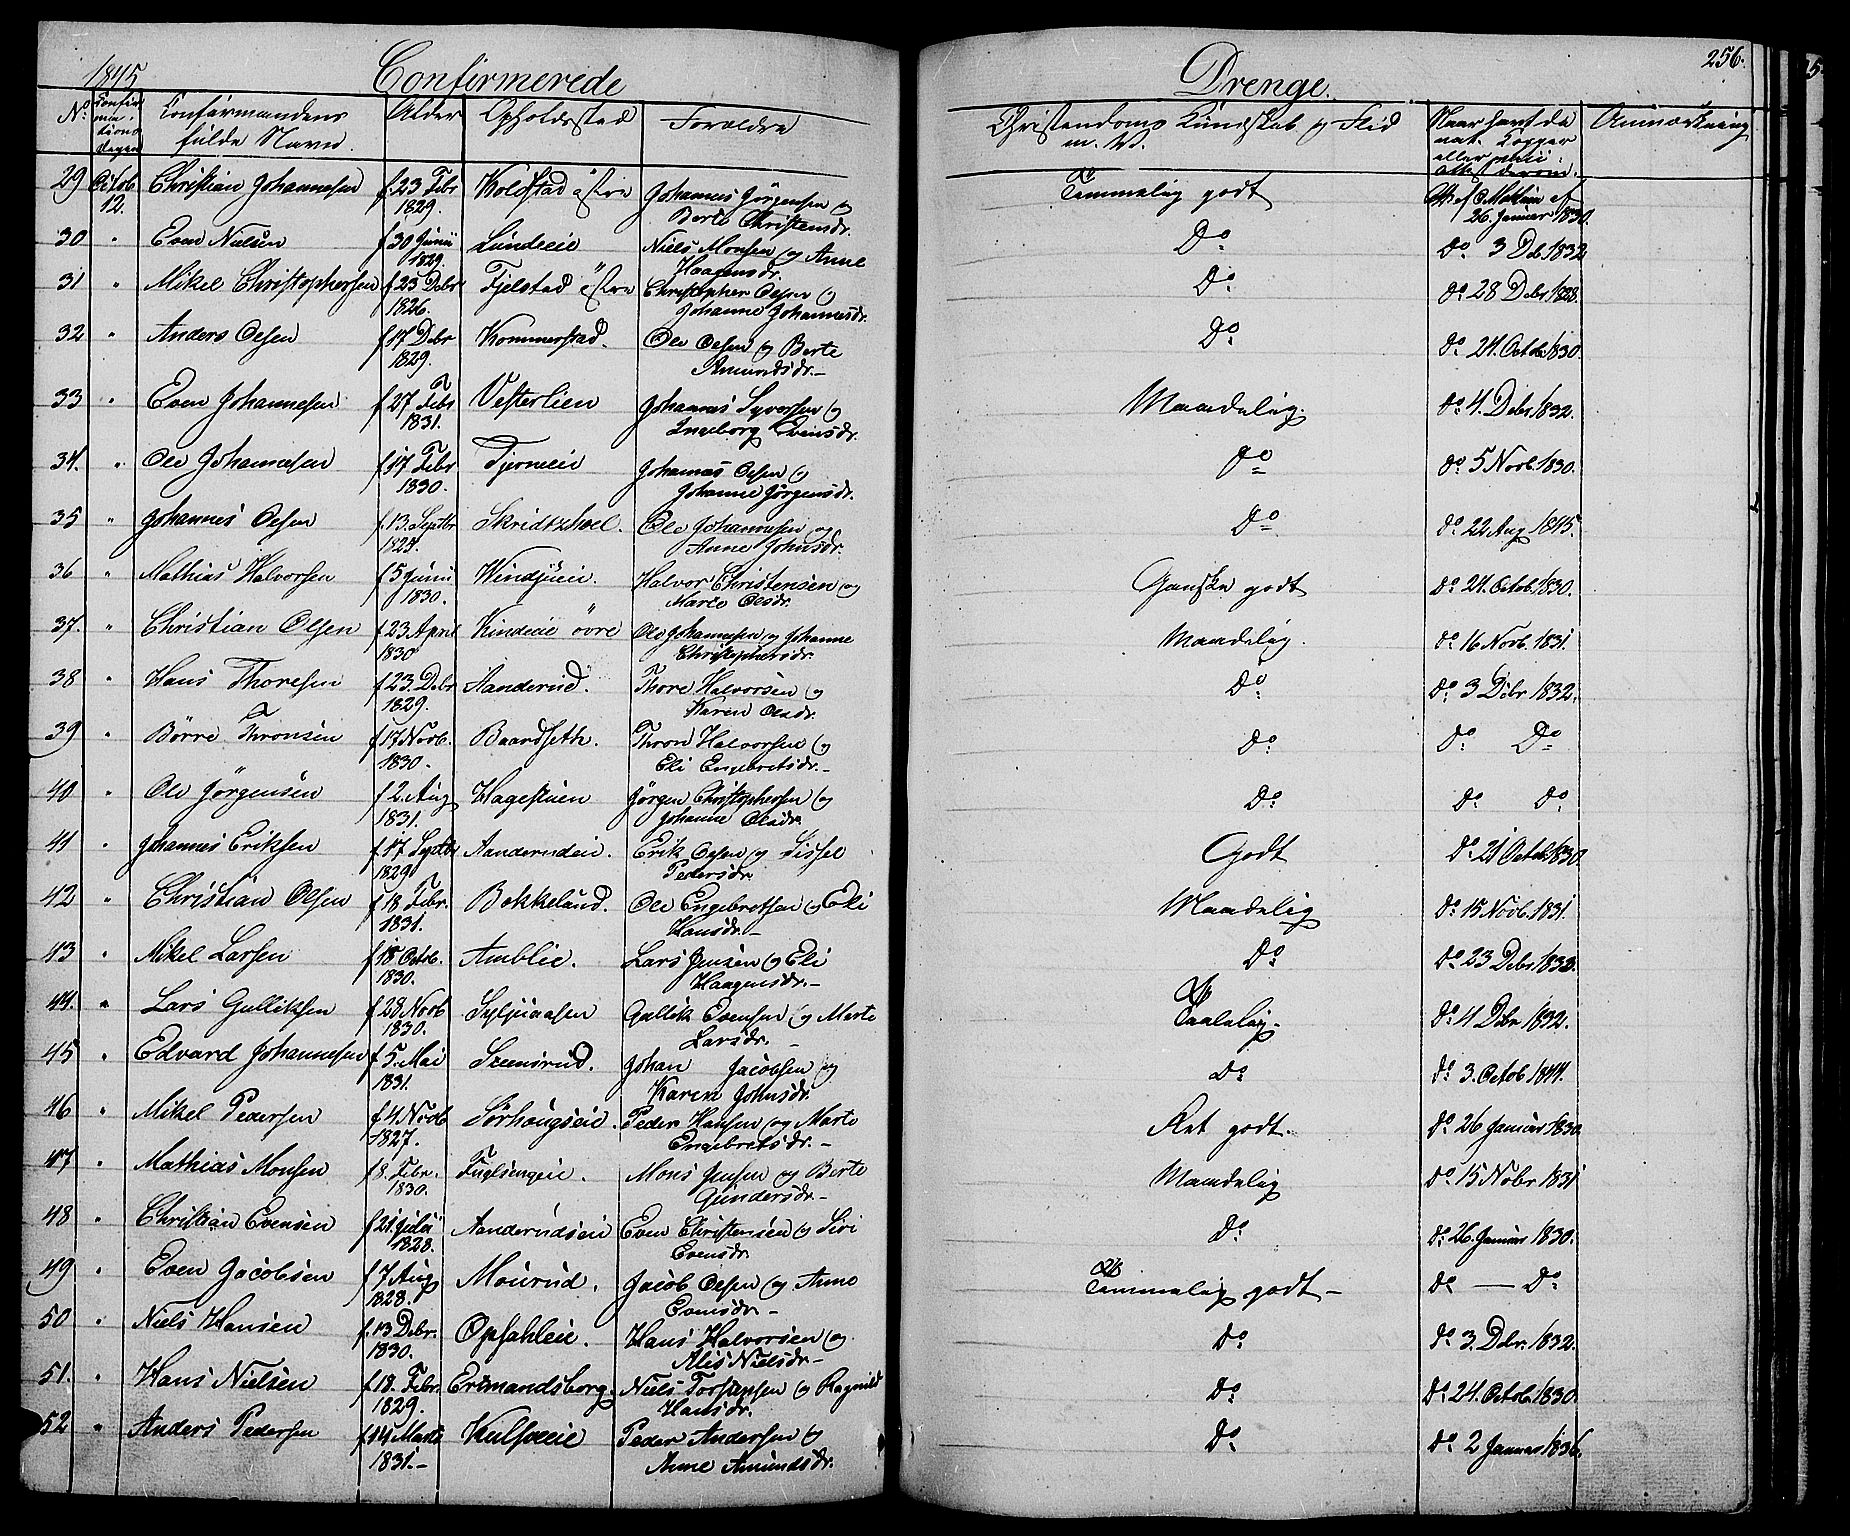 1845 Confirmerede Drenge. 256.
No Confirmationsdagen Confirmandens fulde Navn. Alder Opholdssted Forældre Christendoms Kundskab og Flid m. V. Naar havt de nat. Kopper eller vacci: Attest derom. Anmærkning
29 Octob 12. Christian Johannesen f. 23 Febr 1829. Koldstad östre Johannes Jörgensen og Berte Christensdr. Temmelig godt 26 Januar 1830.
30 " Even Nielsen f 30 Junii 1829. Lundeeie Niels Monsen og Anne Haagensdr. Do Do 3 Deb 1832
31 " Mikel Christophersen f. 23 Debr 1826. Fjelstad östre Christopher Olsen og Johanne Johannesdr. Do Do 28 Debr 1828.
32 " Anders Olsen f 17 Debr 1829. Kommerstad. Ole Olsen og Berte Amundsdr. - Do Do 24. Octob 1830.
33 " Even Johannesen f 27 Febr 1831. Vesterlien Johannes Syversen og Ingeborg Evensdr. Maadelig. Do 4. Debr 1832.
34. " Ole Johannesen f 17 Febr 1830. Tjerneeie Johannes Olsen og Johanne Jörgensdr. Do Do 5 Novb. 1830.
35 " Johannes Olsen f. 13. Septbr 1829. Skridtshoel. Ole Johannesen og Anne Johnsdr. Do Do 22 Aug 1845.
36 " Mathias Halvorsen f 5 Junii 1830. Windjueie. Halvor Christensen og Marte Olsdr. Ganske godt Do 24. Octob. 1830.
37. " Christian Olsen f. 23 April 1830 Kindeeie övre Ole Johannesen og Johanne Christophersdr. Maadelig. Do 16 Novb. 1831.
38 " Hans Thoresen f 23. Debr 1829. Aanderud. Thore Halvorsen og Karen Olsdr. Do Do 3 Debr 1832.
39 " Börre Thronsen f 17 Novb. 1830. Baardseth. Thron Halvorsen og Eli Engebretsdr. - Do Do Do
40 " Ole Jörgensen f 2. Aug 1831. Hagestuen Jörgen Christophersen og Johanne Olsdr. Do Do Do
41 " Johannes Eriksen f. 17 Septbr 1829 Aanderudeie. Erik Olsen og Sissel Pedersdr. Godt Do 21 Octob 1830
42 " Christian Olsen f 18 Febr. 1831. Bekkelund. Ole Engebretsen og Eli Hansdr. - Maadelig Do 15 Novb. 1831.
43 " Mikel Larsen f 18 Octob. 1830. Amblie. Lars Jensen og Eli Haagensdr. - Do Do 23 Debr 1832.
44. " Lars Gulliksen f 28 Novb 1830. Syljuaasen Gullik Evensen og Marte Larsdr. - Taalelig. Do 4 Debr 1832.
45 " Edvard Johannesen f 5. Mai 1831. Steensrud. Johan Jacobsen og Karen Johnsdr. Do Do 3. Octob. 1844.
46 " Mikel Pedersen f. 4 Novb 1827. Sörhaugseie. Peder Hansen og Marte Engebretsdr. - Ret godt. Do 26 Januar 1830
47 " Mathias Monsen f 8. Febr. 1830. Fuglsengeie. Mons Jensen og Berte Gundersdr. - Maadelig Do 15 Nobr. 1831
48 " Christian Evensen f 21 Julii 1828. Aanderudseie Even Christensen og Siri Evensdr. Do Do 26. Januar 1830.
49 " Even Jacobsen f 7 Aug 1828. Mourud. Jacob Olsen og Anne Evensdr. - Temmelig godt - Do — Do
50 " Niels Hansen f. 13 Debr. 1830. Opsahleie. Hans Halvorsen og Alis Nielsdr. - Do Do 3. Debr. 1832.
51. " Hans Nielsen f 18. Febr. 1829. Ersmandsborg. Niels Torstensen og Ragnild Hansdr. Do Do 24. Octob. 1830.
52 " Anders Pedersen f 14 Marts 1831. - Kulsveeie Peder Andersen og Anne Amundsdr. Do Do 2 Januar 1836.